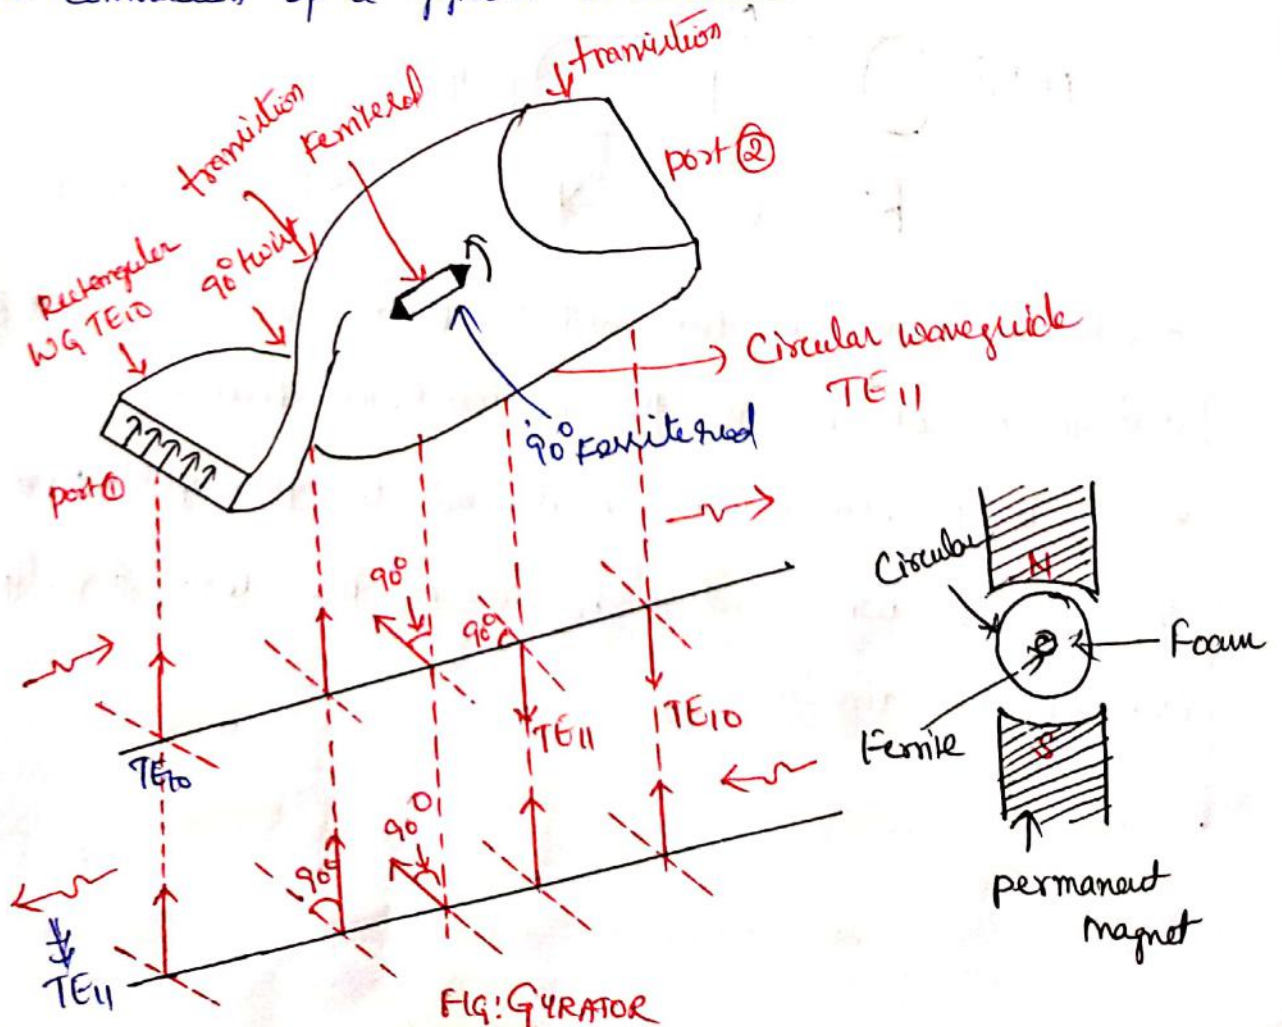 transistion
transistion
Ferrite rod
port ②
Rectangular
WG TE10
90° twist
Circular waveguide
TE11
90° Ferrite rod
port ①
90°
90°
TE10
TE11
TE10
Circular
N
Foam
Ferrite
S
90°
90°
permanent
magnet
TE11
FIG: GYRATOR